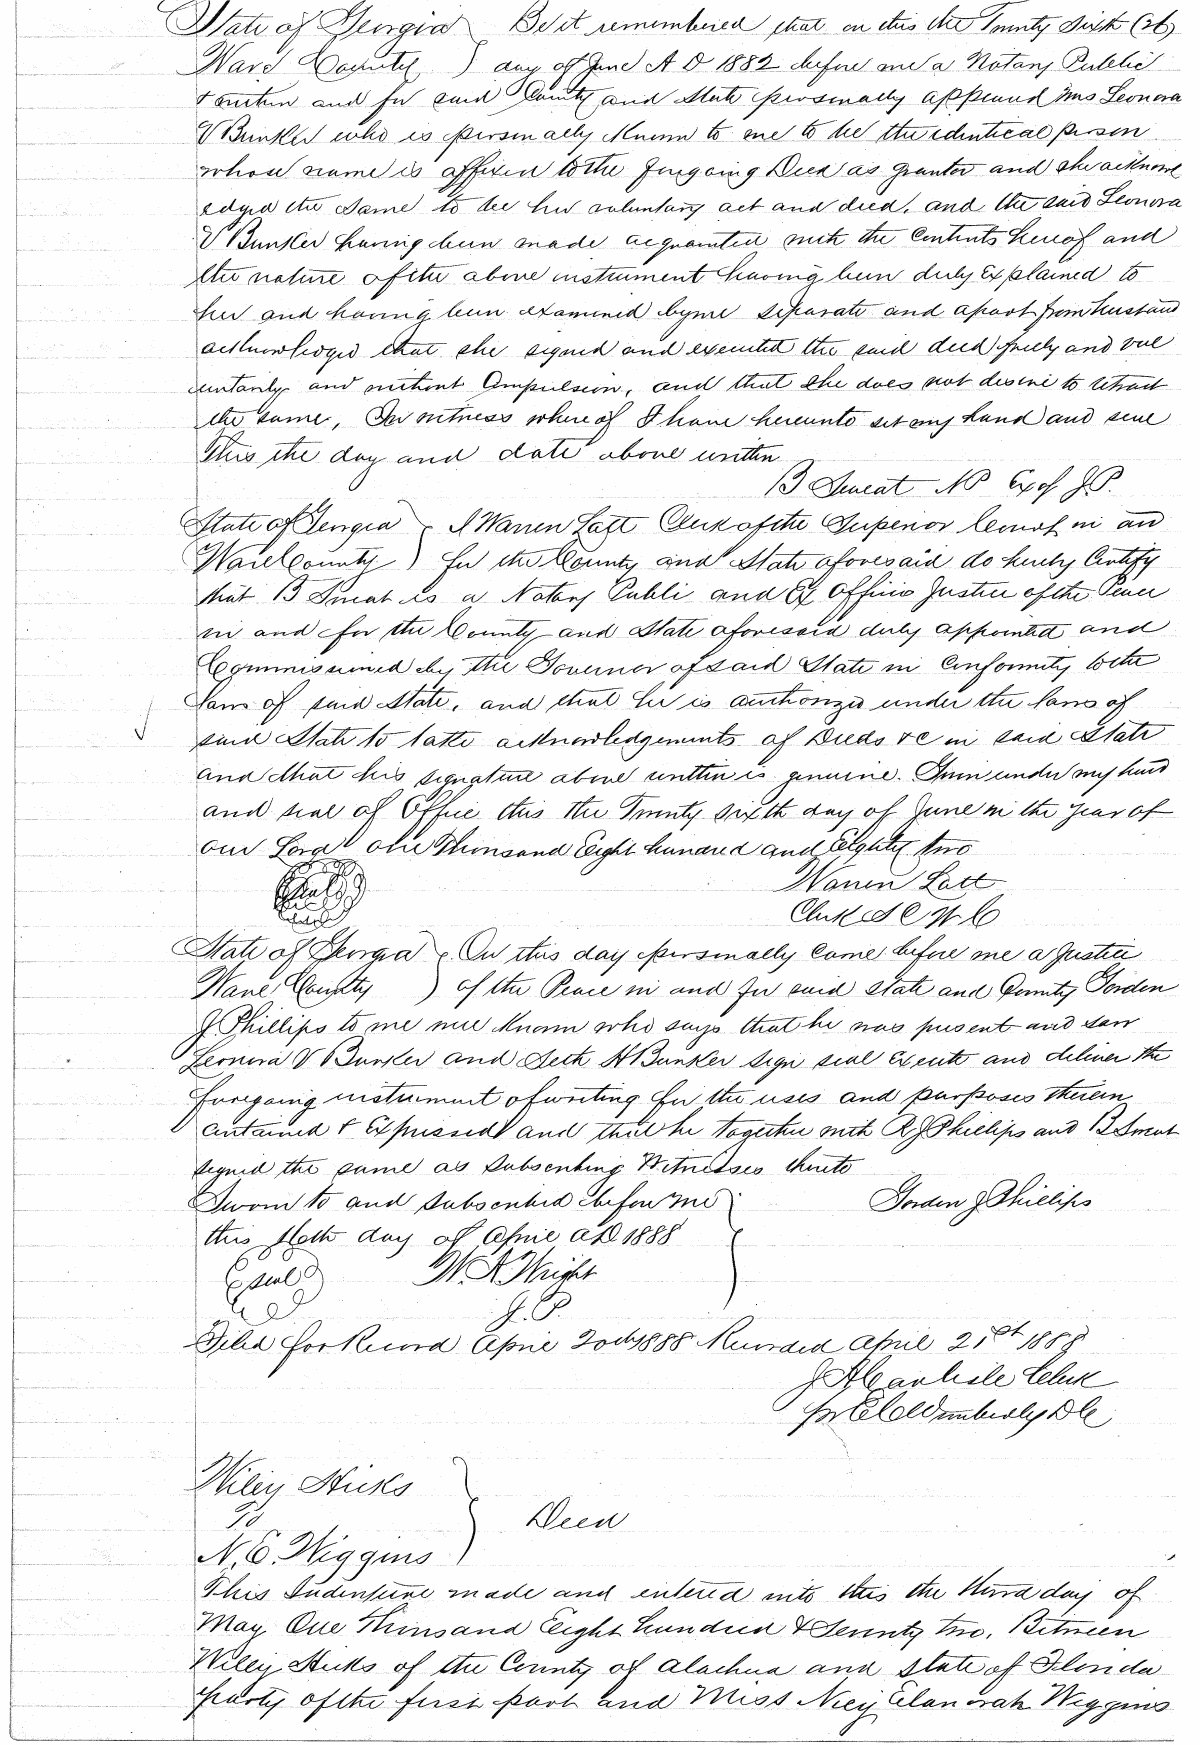 State of Georgia } Be it remembered that on this the Twenty Sixth (26)
Ware County ) day of June A D 1882 before me a Notary Public
& within and for said County and State personally appeared Mrs Leonora
V Bunker who is personally Known to me to be the identical person
whose name is affixed to the foregoing Deed as grantor and she acknowl
edged the Same to be her voluntary act and deed, and the said Leonora
V Bunker having been made acquainted with the Contents hereof and
the nature of the above instrument having been duly Explained to
her and having been examined by me separate and apart from husband
acknowledged that she signed and executed the said deed freely and vol
untarily and without Compulsion, and that she does not desire to retract
the same, In witness where of I have hereunto set my hand and seal
This the day and date above written
B Sweat NP Ex of J.P.
State of Georgia } I Warren Lott Clerk of the Superior Court in an
Ware County ) for the County and State aforesaid do hereby Certify
that B Sweat is a Notary Publi and Ex Officio Justice of the Peace
in and for the County and State aforesaid duly appointed and
Commissioned by the Governor of said State in Conformity to the
laws of said State, and that he is authorized under the laws of
said State to take acknowledgements of Deeds &c in said State
and that his signature above written is genuine. Given under my hand
and seal of Office this the Twenty sixth day of June in the year of
our Lord one Thousand Eight hundred and Eighty two
Warren Lott
Clerk S C W C
State of Georgia } On this day personally Came before me a Justice
Ware County ) of the Peace in and for said State and County Jorden
J Phillips to me well Known who says that he was present and saw
Leonora V Bunker and Seth H Bunker sign seal Execute and deliver the
foregoing instrument of writing for the uses and purposes therein
contained & Expressed and that he together with R J Phillips and B Sweat
signed the same as Subscribing Witnesses thereto
Sworn to and Subscribed before me } Jorden J Phillips
this day of April AD 1888
(Seal) W. A. Wright
J. P.
Filed for Record April 20th 1888 Recorded April 21st 1888
J A Carlisle Clerk
pr Wimberly DC
Wiley Hicks
To } Deed
N. E. Wiggins
This Indenture made and entered into this the third day of
May One Thousand Eight hundred & Seventy two. Between
Wiley Hicks of the County of Alachua and State of Florida
party of the first part and Miss Nicy Elanorah Wiggins